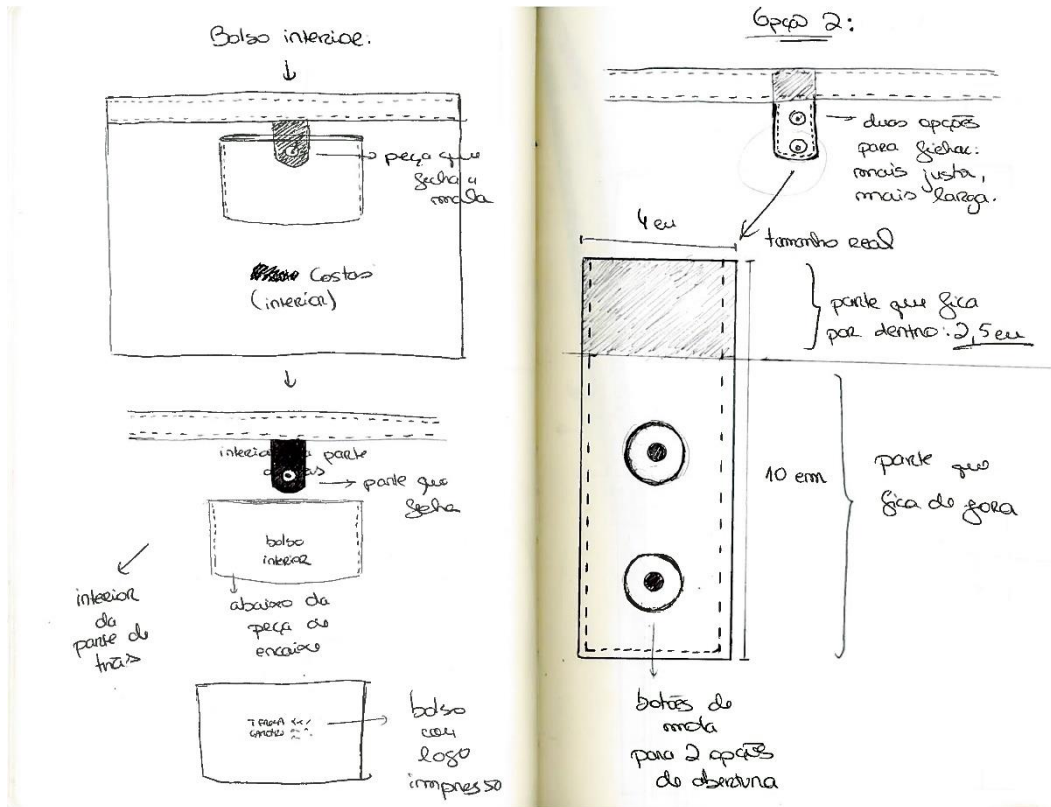 Bolso interior.
peça que
fecha a
mala
Costas
(interior)
interior da parte
de trás
parte que
fecha
bolso
interior
interior
da
parte de
trás
abaixo da
peça de
encaixe
bolso
com
logo
impresso
Opção 2:
duas opções
para fechar:
mais justa,
mais larga.
4 cm
tamanho real
parte que fica
por dentro: 2,5 cm
10 cm
parte que
fica de fora
botões de
mola
para 2 opções
de abertura